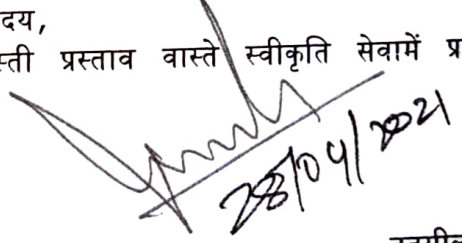 दय,
स्ती प्रस्ताव वास्ते स्वीकृति सेवामें प्र
28/04/2021